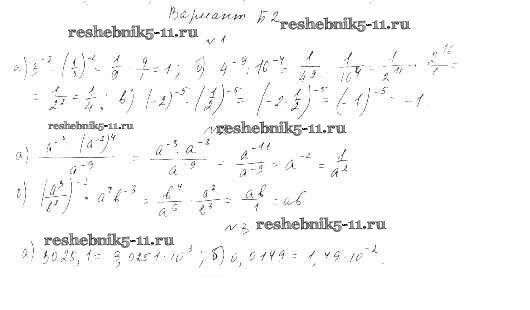 Вариант Б2
reshebnik5-11.ru reshebnik5-11.ru
№1
а) 3⁻² · (1/3)⁻² = 1/9 · 9/1 = 1; б) 4⁻⁹ : 16⁻⁴ = 1/4⁹ : 1/16⁴ = 1/2¹⁸ · 2¹⁶/1 =
= 1/2² = 1/4; в) (-2)⁻⁵ · (1/2)⁻⁵ = (-2 · 1/2)⁻⁵ = (-1)⁻⁵ = -1
reshebnik5-11.ru №2 reshebnik5-11.ru
а) a⁻³ · (a⁻²)⁴ / a⁻⁹ = a⁻³ · a⁻⁸ / a⁻⁹ = a⁻¹¹ / a⁻⁹ = a⁻² = 1/a²
= ab/1 = ab
№3 reshebnik5-11.ru
reshebnik5-11.ru
а) 3025,1 = 3,0251 · 10³; б) 0,0149 = 1,49 · 10⁻².